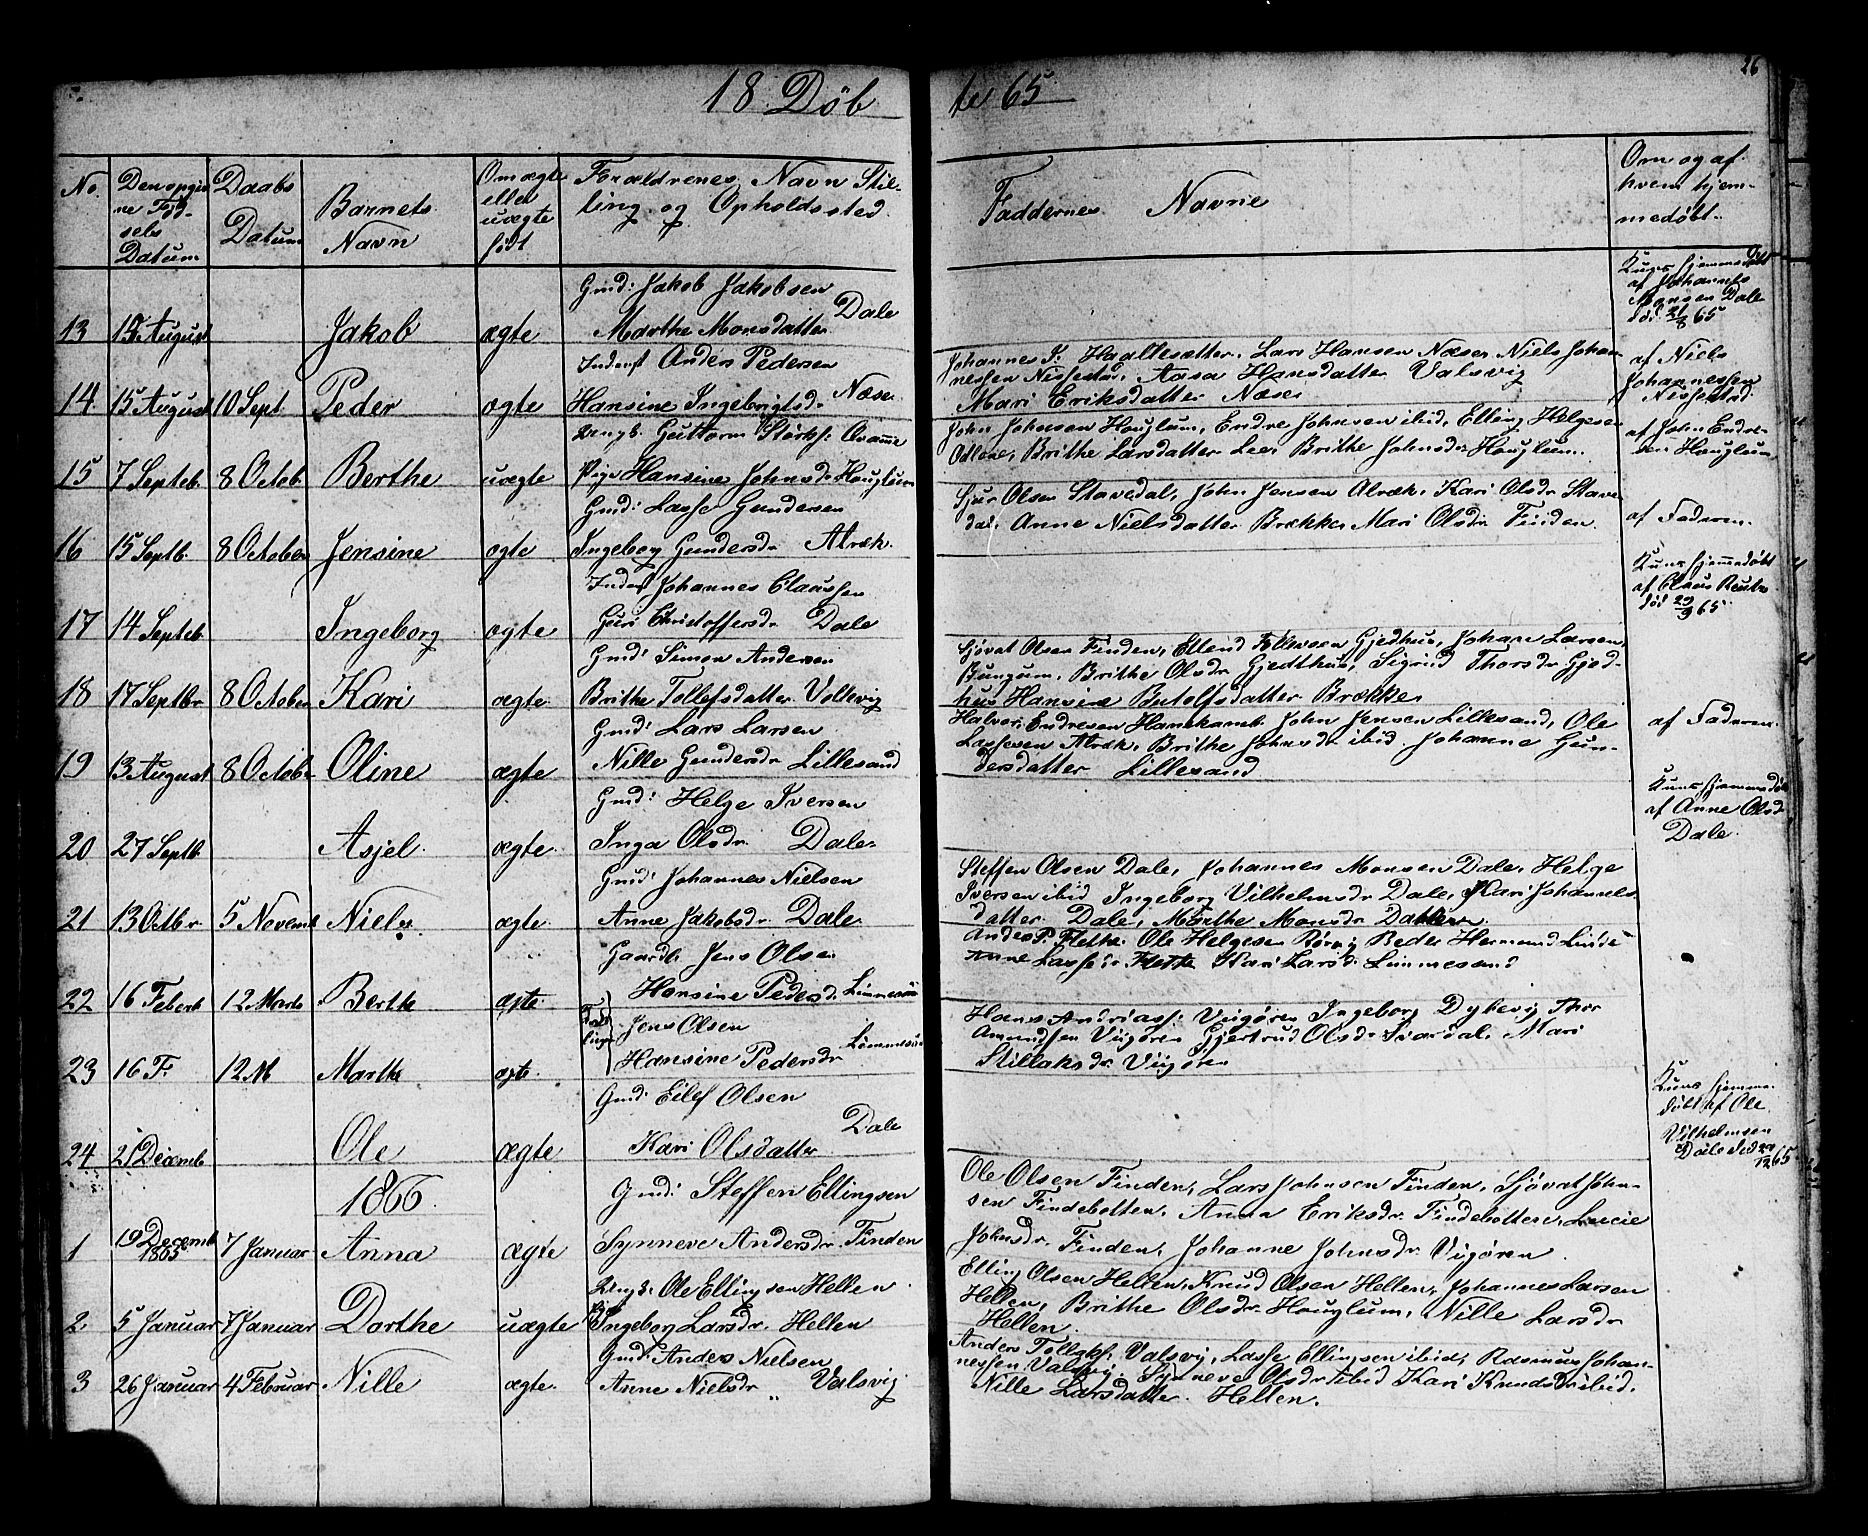 26
18 Döbte 65
No.
Den opgivne Fødsels Datum
Daabs Datum
Barnets Navn
Om ægte eller uægte født
Forældrenes Navn Stilling og Opholdssted.
Faddernes Navne
Om og af hvem hjemmedøbt.
13 15 August Jakob ægte
Gmd: Jakob Jakobsen
Marthe Monsdatter Dale
Kuns hjemmedøbt
af Johannes
Monsen Dale
død 21/8 65
14 15 August 10 Sept. Peder ægte
Inderst Anders Pedersen
Hansine Ingebrigtsdr. Næse
Johannes J. Haaltesætter, Lars Hansen Næse, Niels Johan-
nessen Nissestad, Aasa Hansdatter Valsvig
Mari Eriksdatter Næse
af Niels
Johannessen
Nissestad.
15 7 Septeb. 8 Octob. Berthe uægte
Ungk. Guttorm Størks:
Pige Hansine Johnsdr Houglum
John Johnsen Houglum, Endre Johnsen ibid, Elling Helgesen
Odlone, Brithe Larsdatter Lee, Brithe Johnsdr Houglum.
af John Endre-
sen Houglum
16 15 Septb. 8 October Jensine ægte
Gmd: Lasse Gundersen
Ingeborg Gundersdr Alræk.
Sjur Olsen Stavedal, John Jensen Alræk, Kari Olsdr Stave-
dal, Anne Nielsdatter Brække, Mari Olsdr Finden.
af Faderen.
17 14 Septeb. Ingeborg ægte
Inderst Johannes Claussen
Guri Christoffersdr Dale
Kuns hjemmedøbt
af Claus
død 29/9 65.
18 17 Septbr 8 October Kari ægte
Gmd: Simon Andersen
Brithe Tollefsdatter Valsvig
Sjøvat Olsen Finden, Ellend Gjedhus, Johan Larsen,
Bungum, Brithe Olsdr Gjedthus, Sigrid Thorsdr Gjed-
hus, Hansine Botolfsdatter Brække
af Faderen.
19 13 August 8 Octob. Oline ægte
Gmd: Lars Larsen
Nille Gundersdr Lillesand
Halvor Endresen Hamhamb. John Jensen Lillesand, Ole
Lassesen Alræk, Brithe Johnsdr ibid Johanne Gun-
dersdatter Lillesand
20 27 Septb. Asjel ægte
Gmd: Helge Iversen
Inga Olsdr. Dale
Kuns hjemmedøbt
af Anne Olsdr
Dale.
21 13 Octbr 5 Novemb. Niels ægte
Gmd: Johannes Nielsen
Anne Jakobsdr. Dale
Steffen Olsen Dale, Johannes Monsen Dale, Helge
Iversen ibid Ingeborg Vilhelmsdr Dale, Kari Johannes-
datter Dale, Marthe Monsdr
22 16 Feberb 12 Marts Berthe ægte
Gaardb. Jens Olsen
Hansine Pedersd.
Anders P. Flethe. Ole Helgesen Peder Hermund Linde
Anne Lassedr Flette Kari Larsd.
23 16 F. 12 M Marthe ægte
Jens Olsen
Hansine Pedersdr
Hans Andrias: Viigøren Ingeborg Dybevig Thor
Amundsen Viigøren Gjertrud Olsdr Svardal, Mari
Stillaksdr Viigøren
24 21 Decemb Ole ægte
Gmd: Eilef Olsen
Kari Olsdatter Dale
Kuns hjemme-
døbt af Ole
Vilhelmsen
Dale
1866.
1 19 Decemb 1865 7 Januar Anna ægte
Gmd: Steffen Ellingsen
Synneve Andersdr. Finden
Ole Olsen Finden, Lars Johnsen Finden, Sjøvat John-
sen Findebotten, Anna Eriksdr. Findebotten, Lucie
Johnsdr. Finden, Johanne Johnsdr Vigøren.
2 5 Januar 7 Januar Dorthe uægte
Ungk: Ole Ellingsen Hellen
Ingeborg Larsdr. Hellen
Elling Olsen Hellen, Knud Olsen Hellen, Johannes Larsen
Hellen, Brithe Olsdr Houglum, Nille Larsdr
Hellen.
3 26 Januar 4 Februar Nille ægte
Gmd: Anders Nielsen
Anne Nielsdr „ Valsvig
Anders Tollaks: Valsvig, Lasse Ellingsen ibid, Rasmus Johan-
nessen Valsvig, Synneve Olsdr ibid Kari Knudsdr ibid.
Nille Larsdatter Hellen.